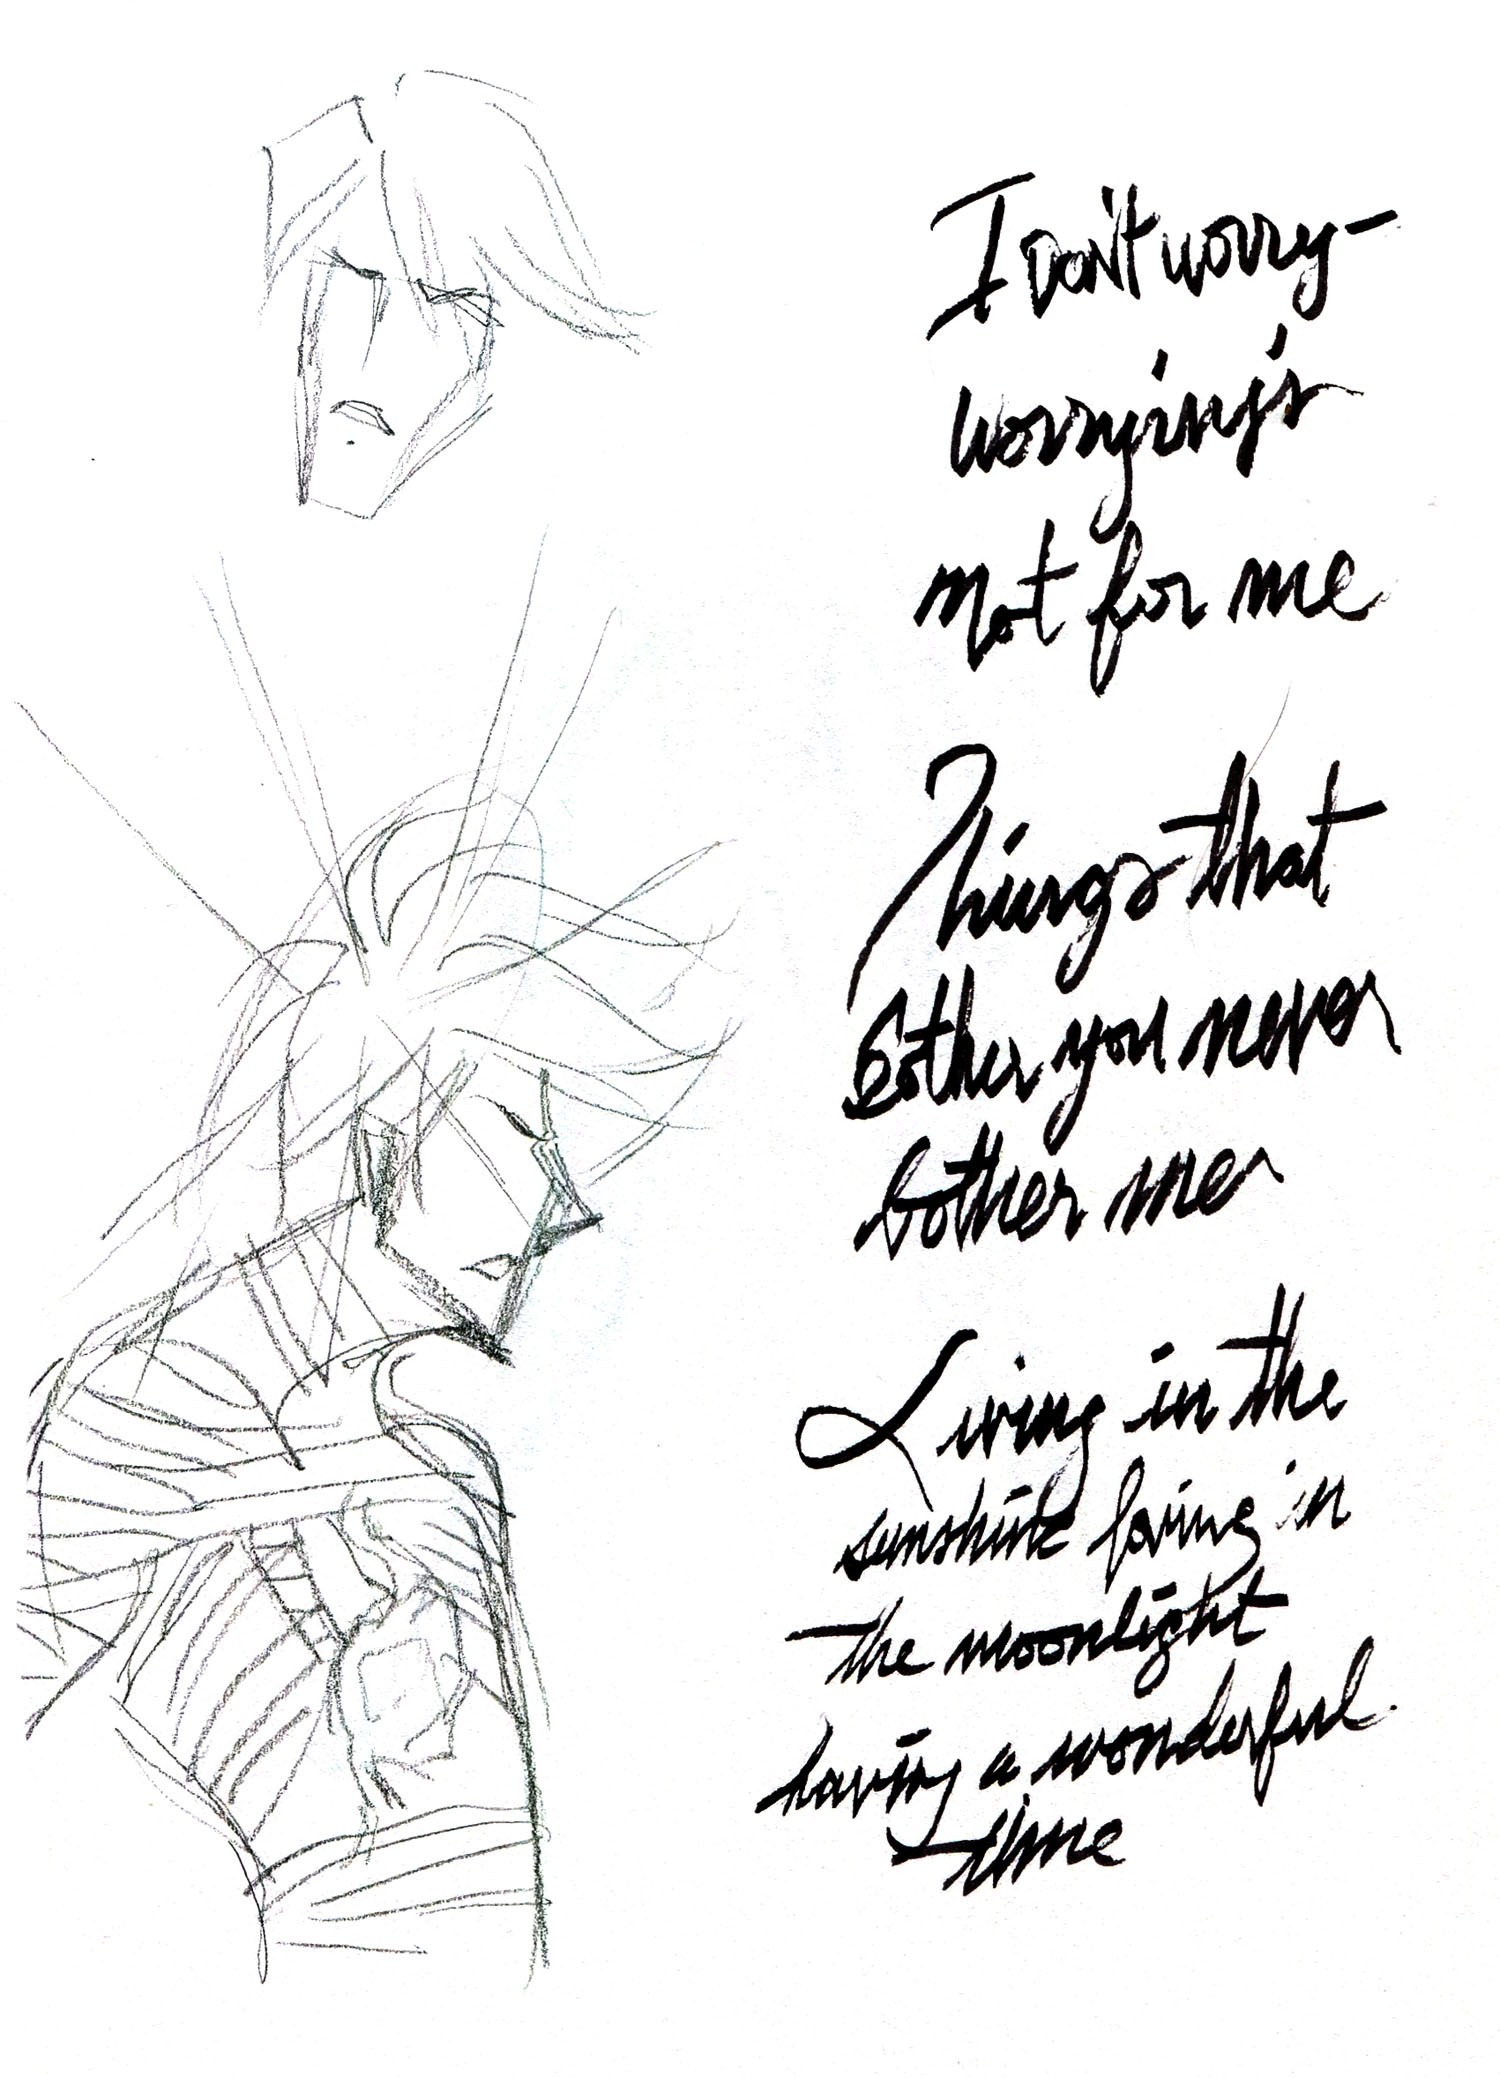 I Don't worry-
worrying's
not for me
Things that
bother you never
bother me
Living in the
sunshine loving in
the moonlight
having a wonderful
time